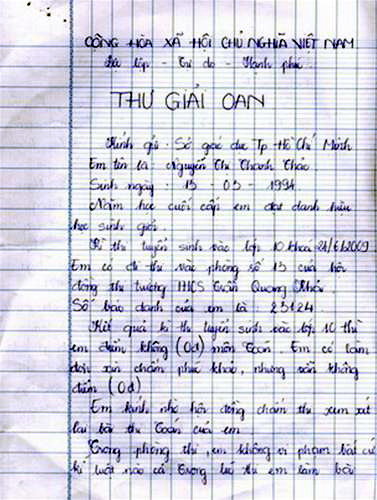 CỘNG HÒA XÃ HỘI CHỦ NGHĨA VIỆT NAM
Độc lập - Tự do - Hạnh phúc
THƯ GIẢI OAN
Kính gửi : Sở giáo dục Tp Hồ Chí Minh
Em tên là : Nguyễn Thị Thanh Thảo
Sinh ngày : 15 - 03 - 1994
Năm học cuối cấp em đạt danh hiệu
học sinh giỏi.
Kì thi tuyển sinh vào lớp 10 khóa 24/6/2009
Em có đi thi vào phòng số 13 của hội
đồng thi trường THCS Trần Quang Khải.
Số báo danh của em là : 23124.
Kết quả kì thi tuyển sinh vào lớp 10 thì
em điểm không (0đ) môn Toán. Em có làm
đơn xin chấm phúc khảo, nhưng vẫn không
điểm (0đ)
Em kính nhờ hội đồng chấm thi xem xét
lại bài thi Toán của em
Trong phòng thi, em không vi phạm bất cứ
kỉ luật nào cả Trong lúc thi em làm bài